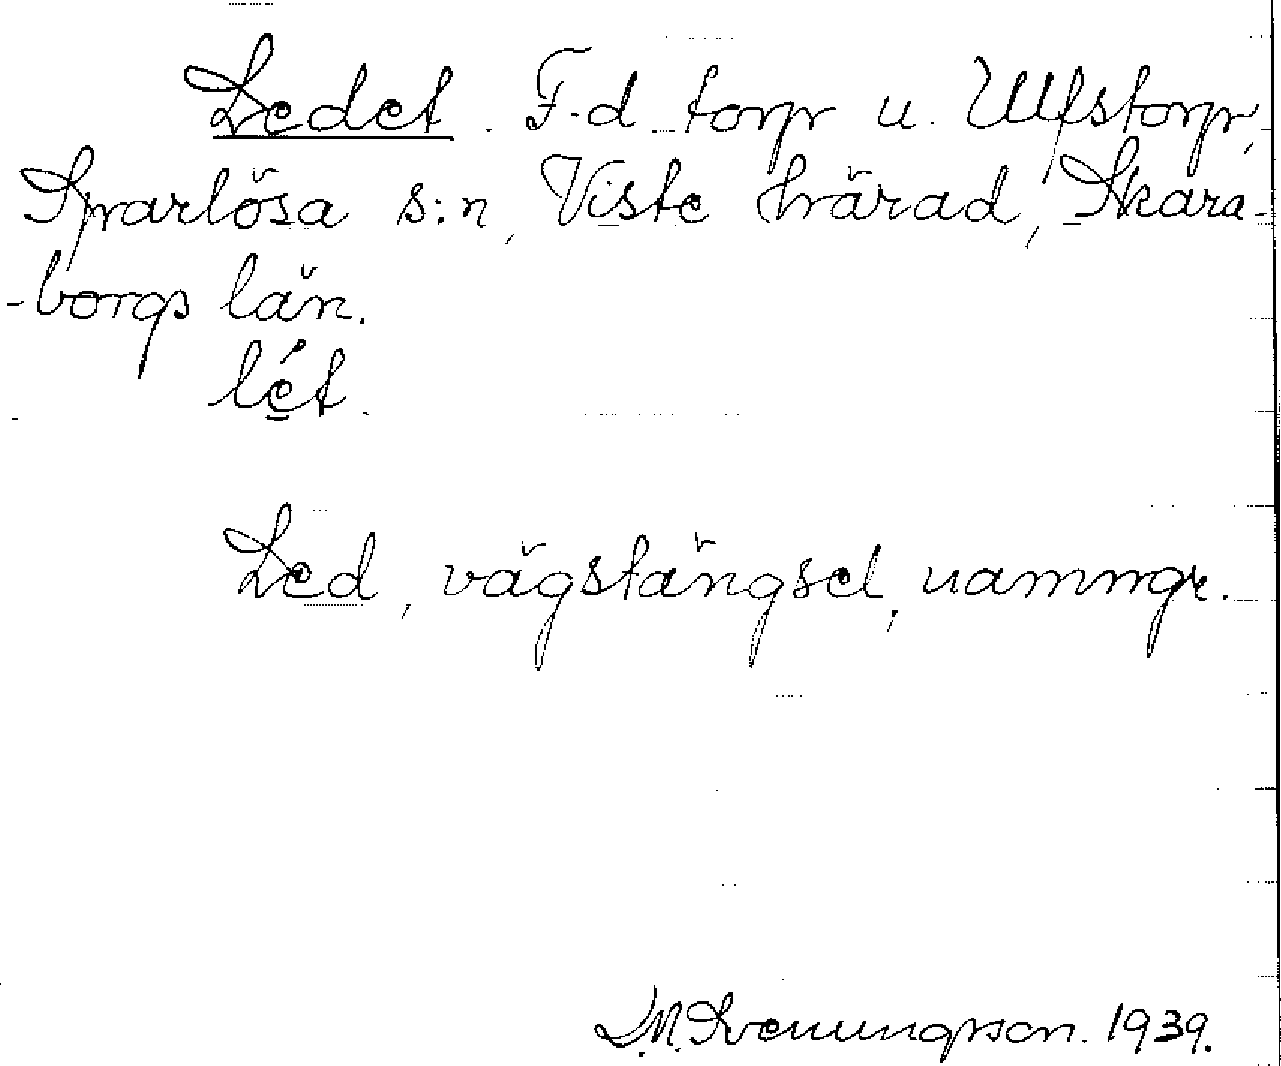 Ledet. F.d. torp u. Ulfstorp,
Sparlösa s:n, Viste härad, Skara-
-borgs län.
lét.
Led, vägstängsel, namngr.
D.N. Svenungsson. 1939.